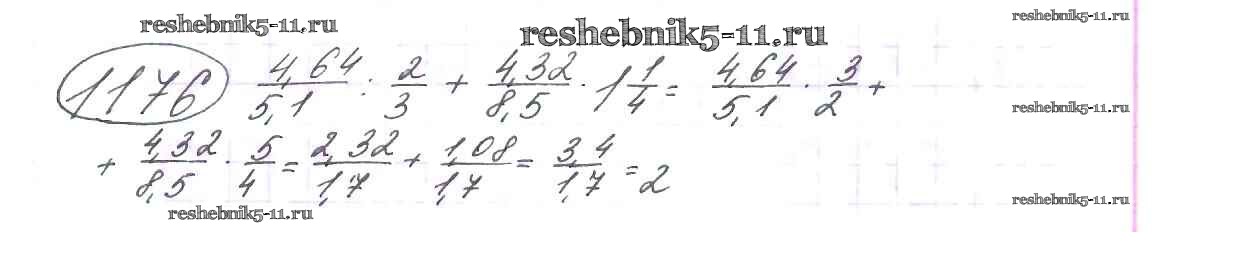 reshebnik5-11.ru
reshebnik5-11.ru
reshebnik5-11.ru
1176 4,64/5,1 : 2/3 + 4,32/8,5 · 1 1/4 = 4,64/5,1 · 3/2 +
reshebnik5-11.ru
+ 4,32/8,5 · 5/4 = 2,32/1,7 + 1,08/1,7 = 3,4/1,7 = 2
reshebnik5-11.ru
reshebnik5-11.ru